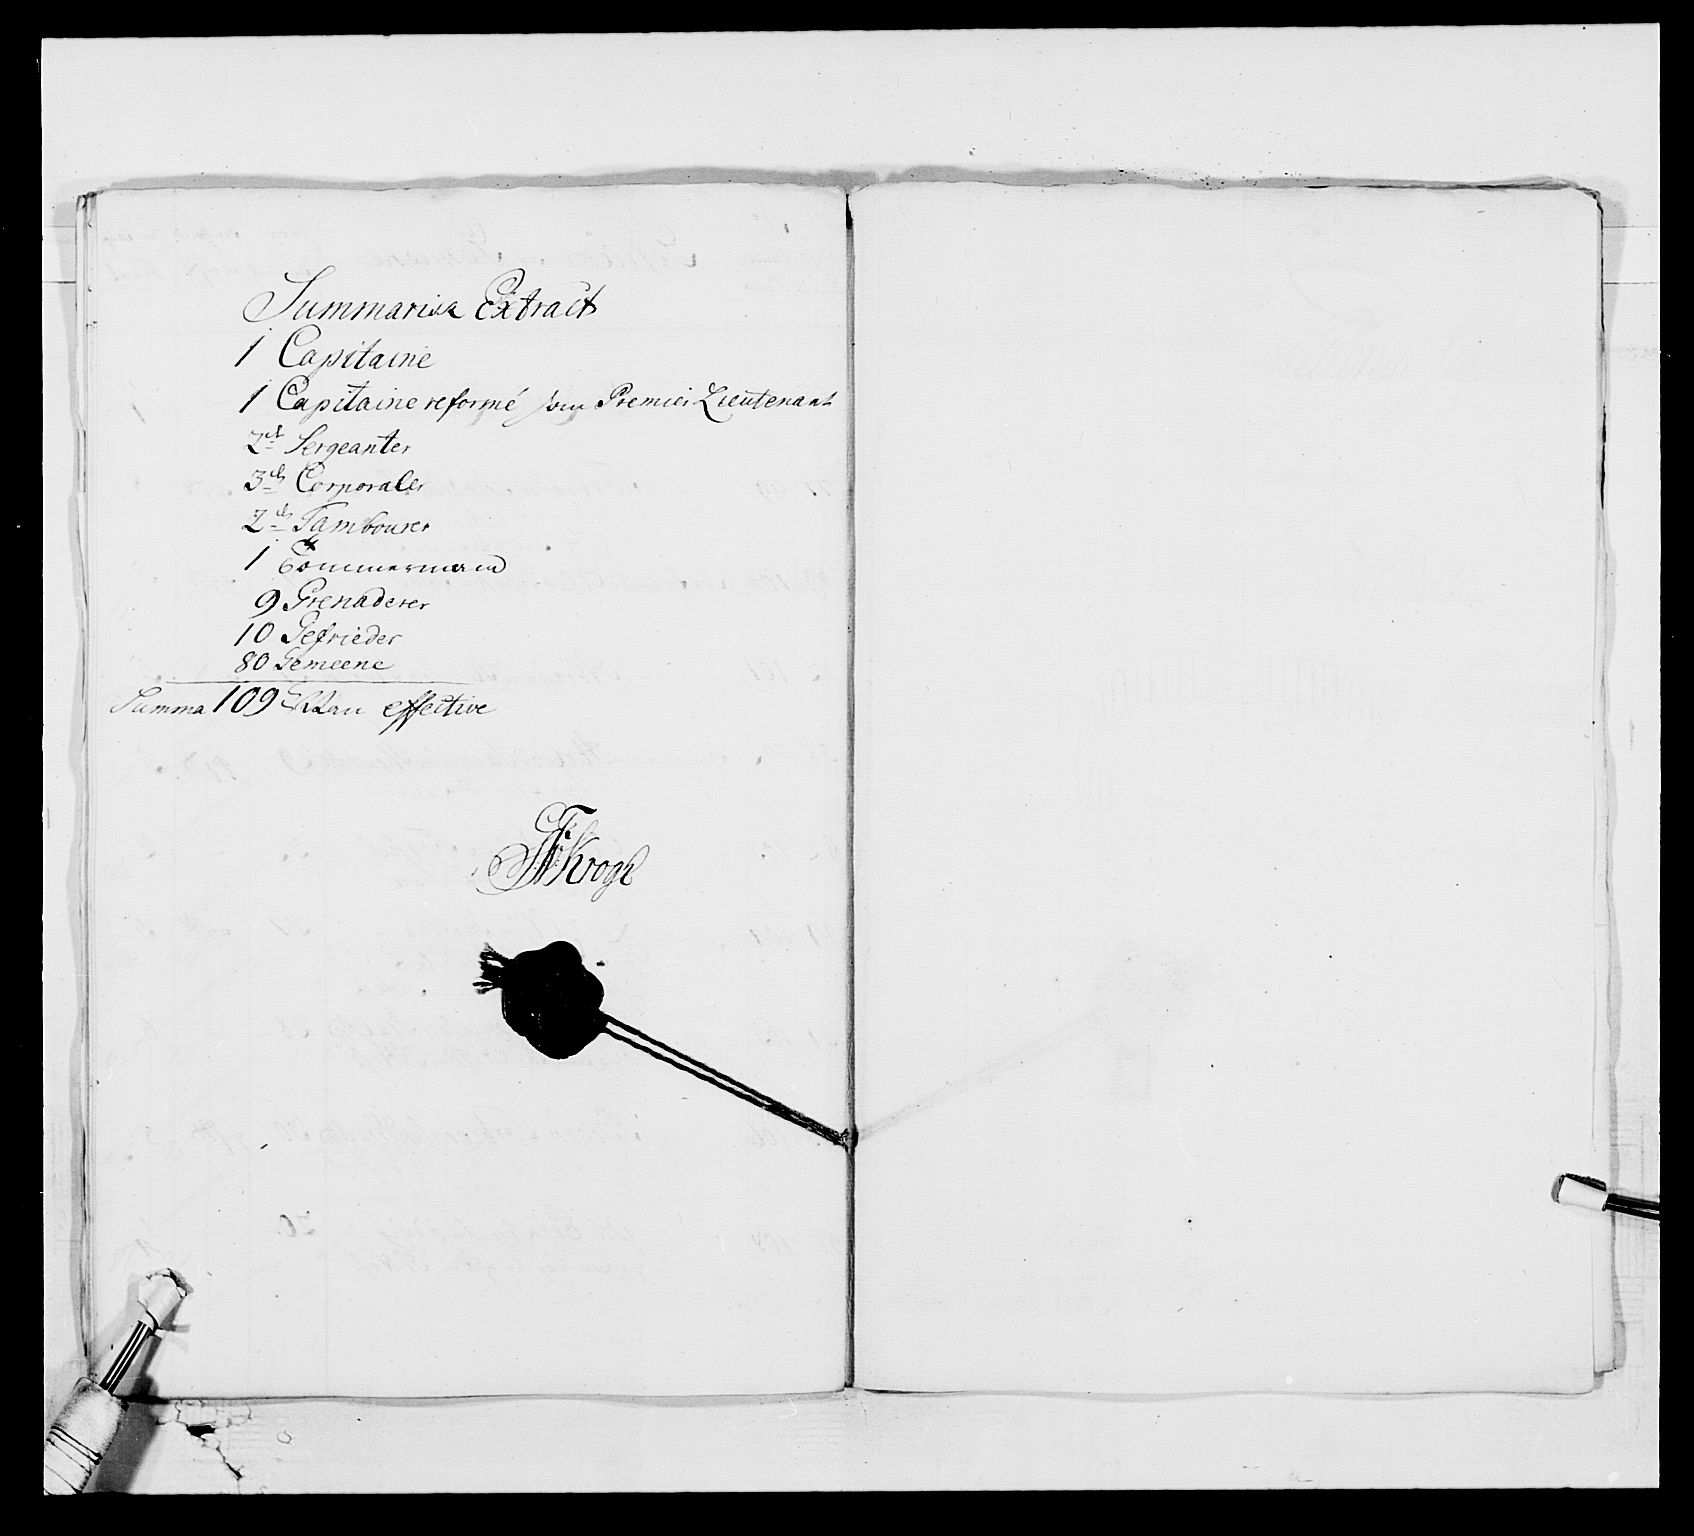 Summarisk Extract
1 Capitaine
1 Capitaine reformé som Premier Lieutenant
2de Sergeanter
3de Corporaler
2de Tambourer
1 Tömmermand
9 Grenaderer
10 Gefrieder
80 Gemeene
Summa 109 Man effective
Krogh